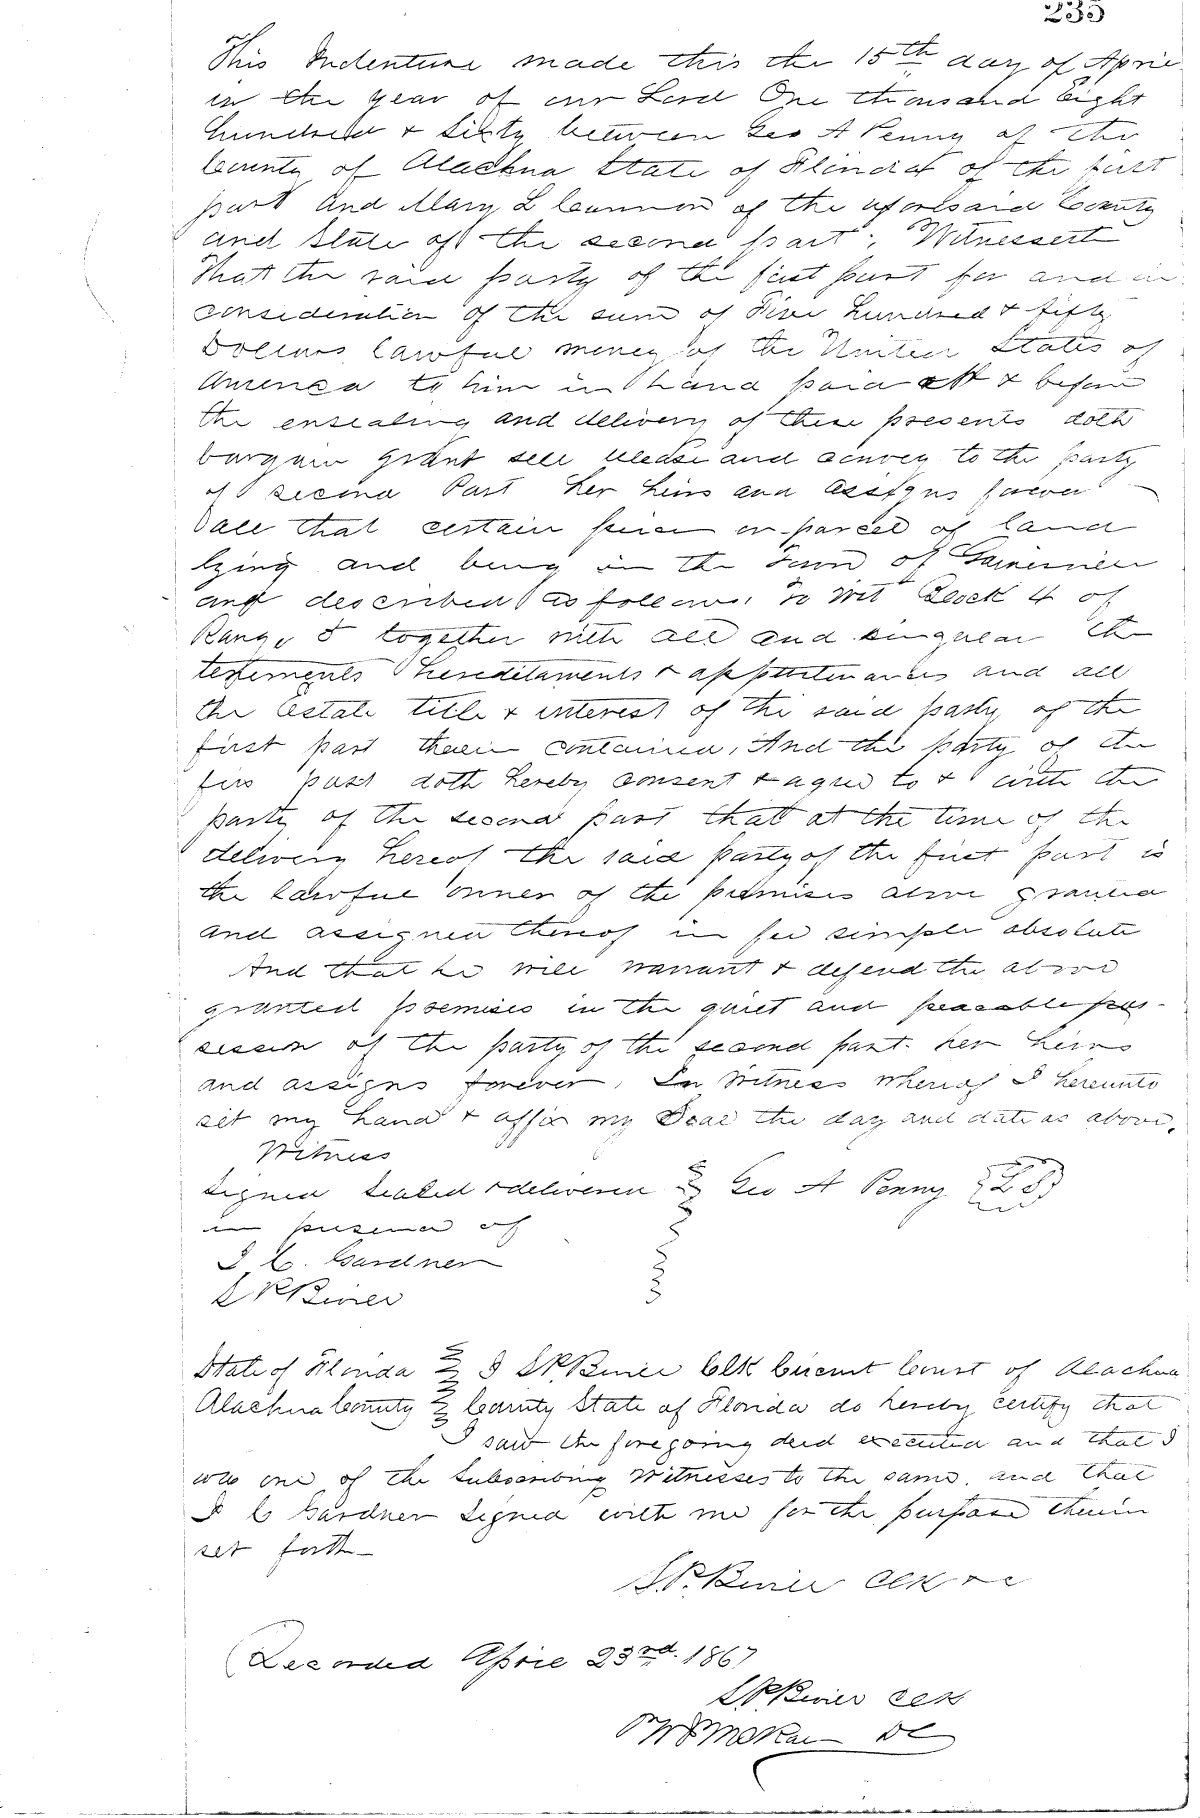 235
This Indenture made this the 15th day of April
in the year of our Lord One thousand Eight
hundred & Sixty between Geo A Penny of the
County of Alachua State of Florida of the first
part and Mary L Cannon of the aforesaid County
and State of the second part; Witnesseth
That the said party of the first part for and in
consideration of the sum of Five hundred & fifty
Dollars lawful money of the United States of
America to him in hand paid at & before
the ensealing and delivery of these presents doth
bargain grant sell release and convey to the party
of second Part her heirs and assigns forever
all that certain piece or parcel of land
lying and being in the Town of Gainesville
and described as follows. To Wit Block 4 of
Range 5 together with all and singular the
tenements hereditaments & appurtenances and all
the Estate title & interest of the said party of the
first part therein contained, And the party of the
firs part doth hereby consent & agree to & with the
party of the second part that at the time of the
delivery hereof the said party of the first part is
the lawful owner of the premises above granted
and assigned thereof in fee simple absolute
And that he will warrant & defend the above
granted premises in the quiet and peaceable pos-
session of the party of the second part her heirs
and assigns forever, In Witness whereof I hereunto
set my hand & affix my Seal the day and date as above,
Witness
Signed Sealed & delivered Geo A Penny {LS}
in presence of
I C. Gardner
State of Florida I Clk Circuit Court of Alachua
Alachua County County State of Florida do hereby certify that
I saw the foregoing deed executed and that I
was one of the Subscribing Witnesses to the same, and that
I C Gardner Signed with me for the purpose therein
set forth
Clk
Recorded April 23rd. 1867
Clk
DC